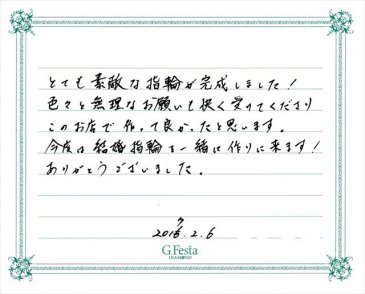 とても素敵な指輪が完成しました!
色々と無理なお願いも快く受けてくださり
このお店で作って良かったと思います。
今度は結婚指輪を一緒に作りに来ます!
ありがとうございました。
2016.2.6
G.Festa
DIAMOND